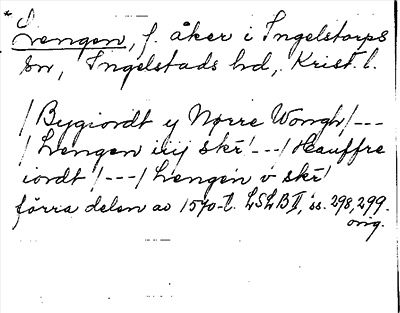 * Lengen, f. åker i Ingelstorps
sn, Ingelstads hd, Krist. l.
/Bygiordt y Nørre Wongh/---
/Lengen iiij skr̄/---/Hauffre
iordt/---/Lengen v skr̄/
förra delen av 1570-t. LSLB II, ss. 298, 299.
orig.